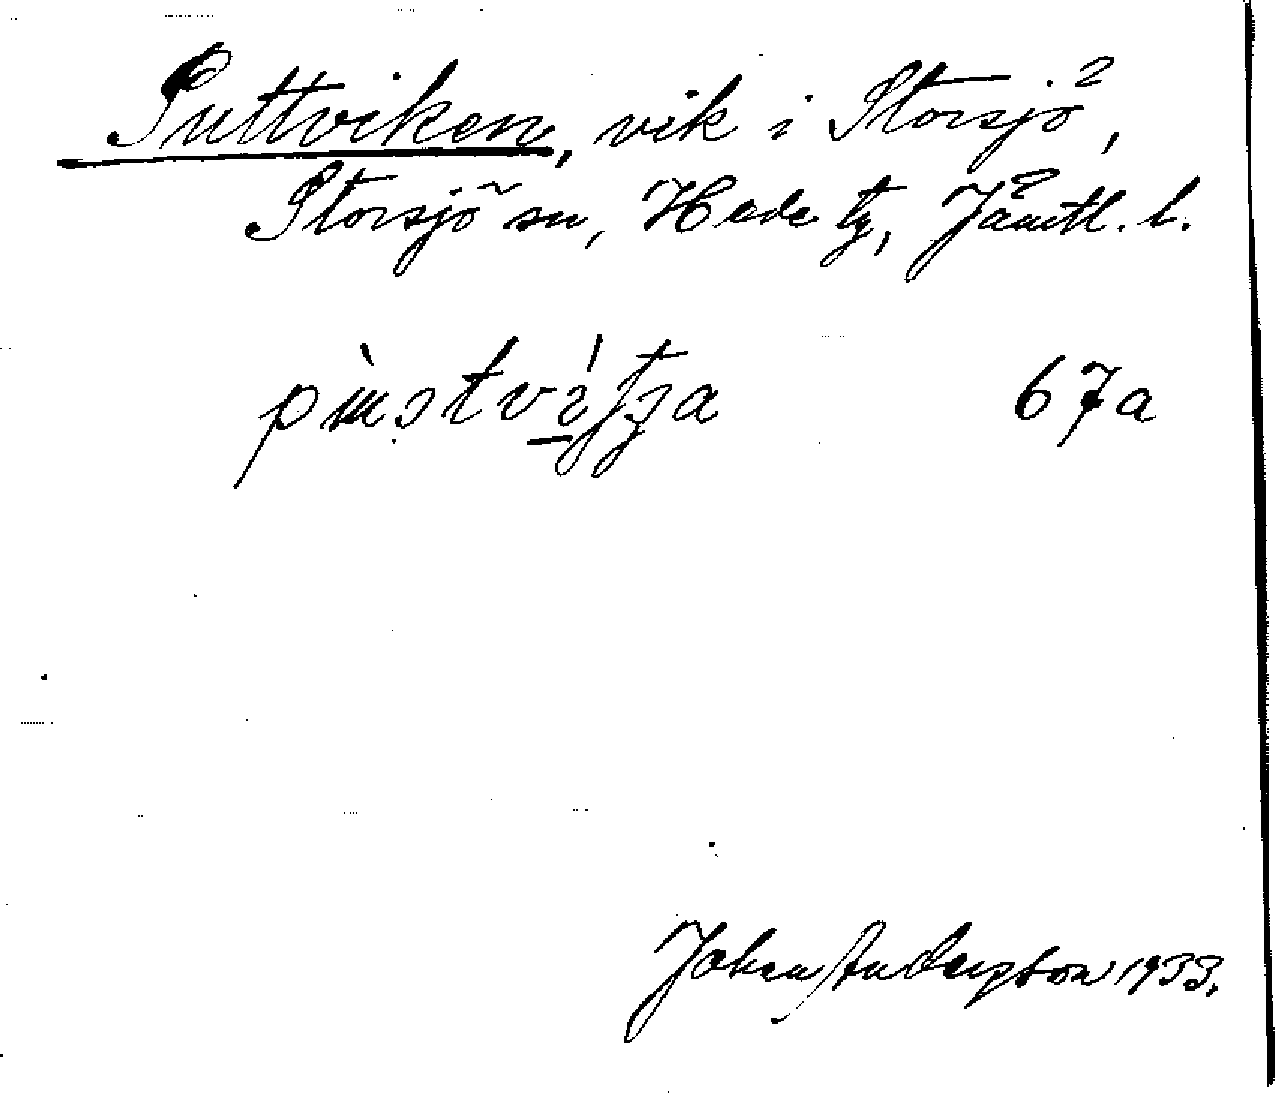 Puttviken, vik i Storsjö,
Storsjö sn, Hede tg, Jämtl. l.
67a
Johan Anderzson 1933.